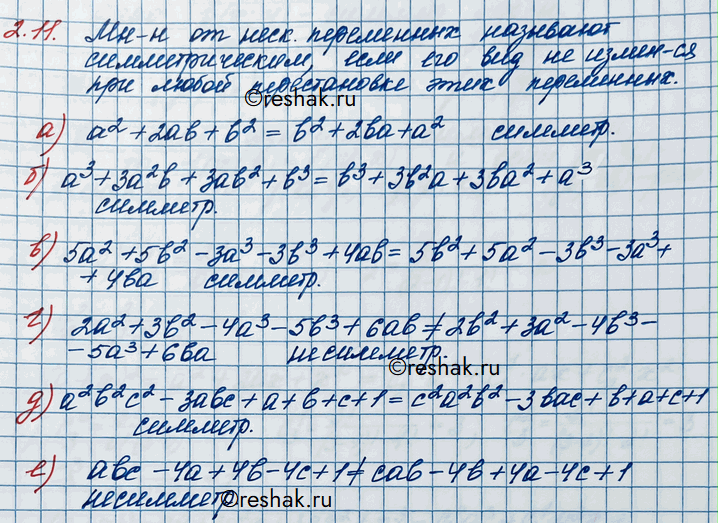 2.11. Мн-н от неск. переменных называют
симметрическим, если его вид не измен-ся
при любой перестановке этих переменных.
©reshak.ru
а) a² + 2ab + b² = b² + 2ba + a² симметр.
б) a³ + 3a²b + 3ab² + b³ = b³ + 3b²a + 3ba² + a³
симметр.
в) 5a² + 5b² - 3a³ - 3b³ + 4ab = 5b² + 5a² - 3b³ - 3a³ +
+ 4ba симметр.
г) 2a² + 3b² - 4a³ - 5b³ + 6ab ≠ 2b² + 3a² - 4b³ -
- 5a³ + 6ba несимметр.
©reshak.ru
д) a²b²c² - 3abc + a + b + c + 1 = c²a²b² - 3bac + b + a + c + 1
симметр.
е) abc - 4a + 4b - 4c + 1 ≠ cab - 4b + 4a - 4c + 1
несимметр.
©reshak.ru